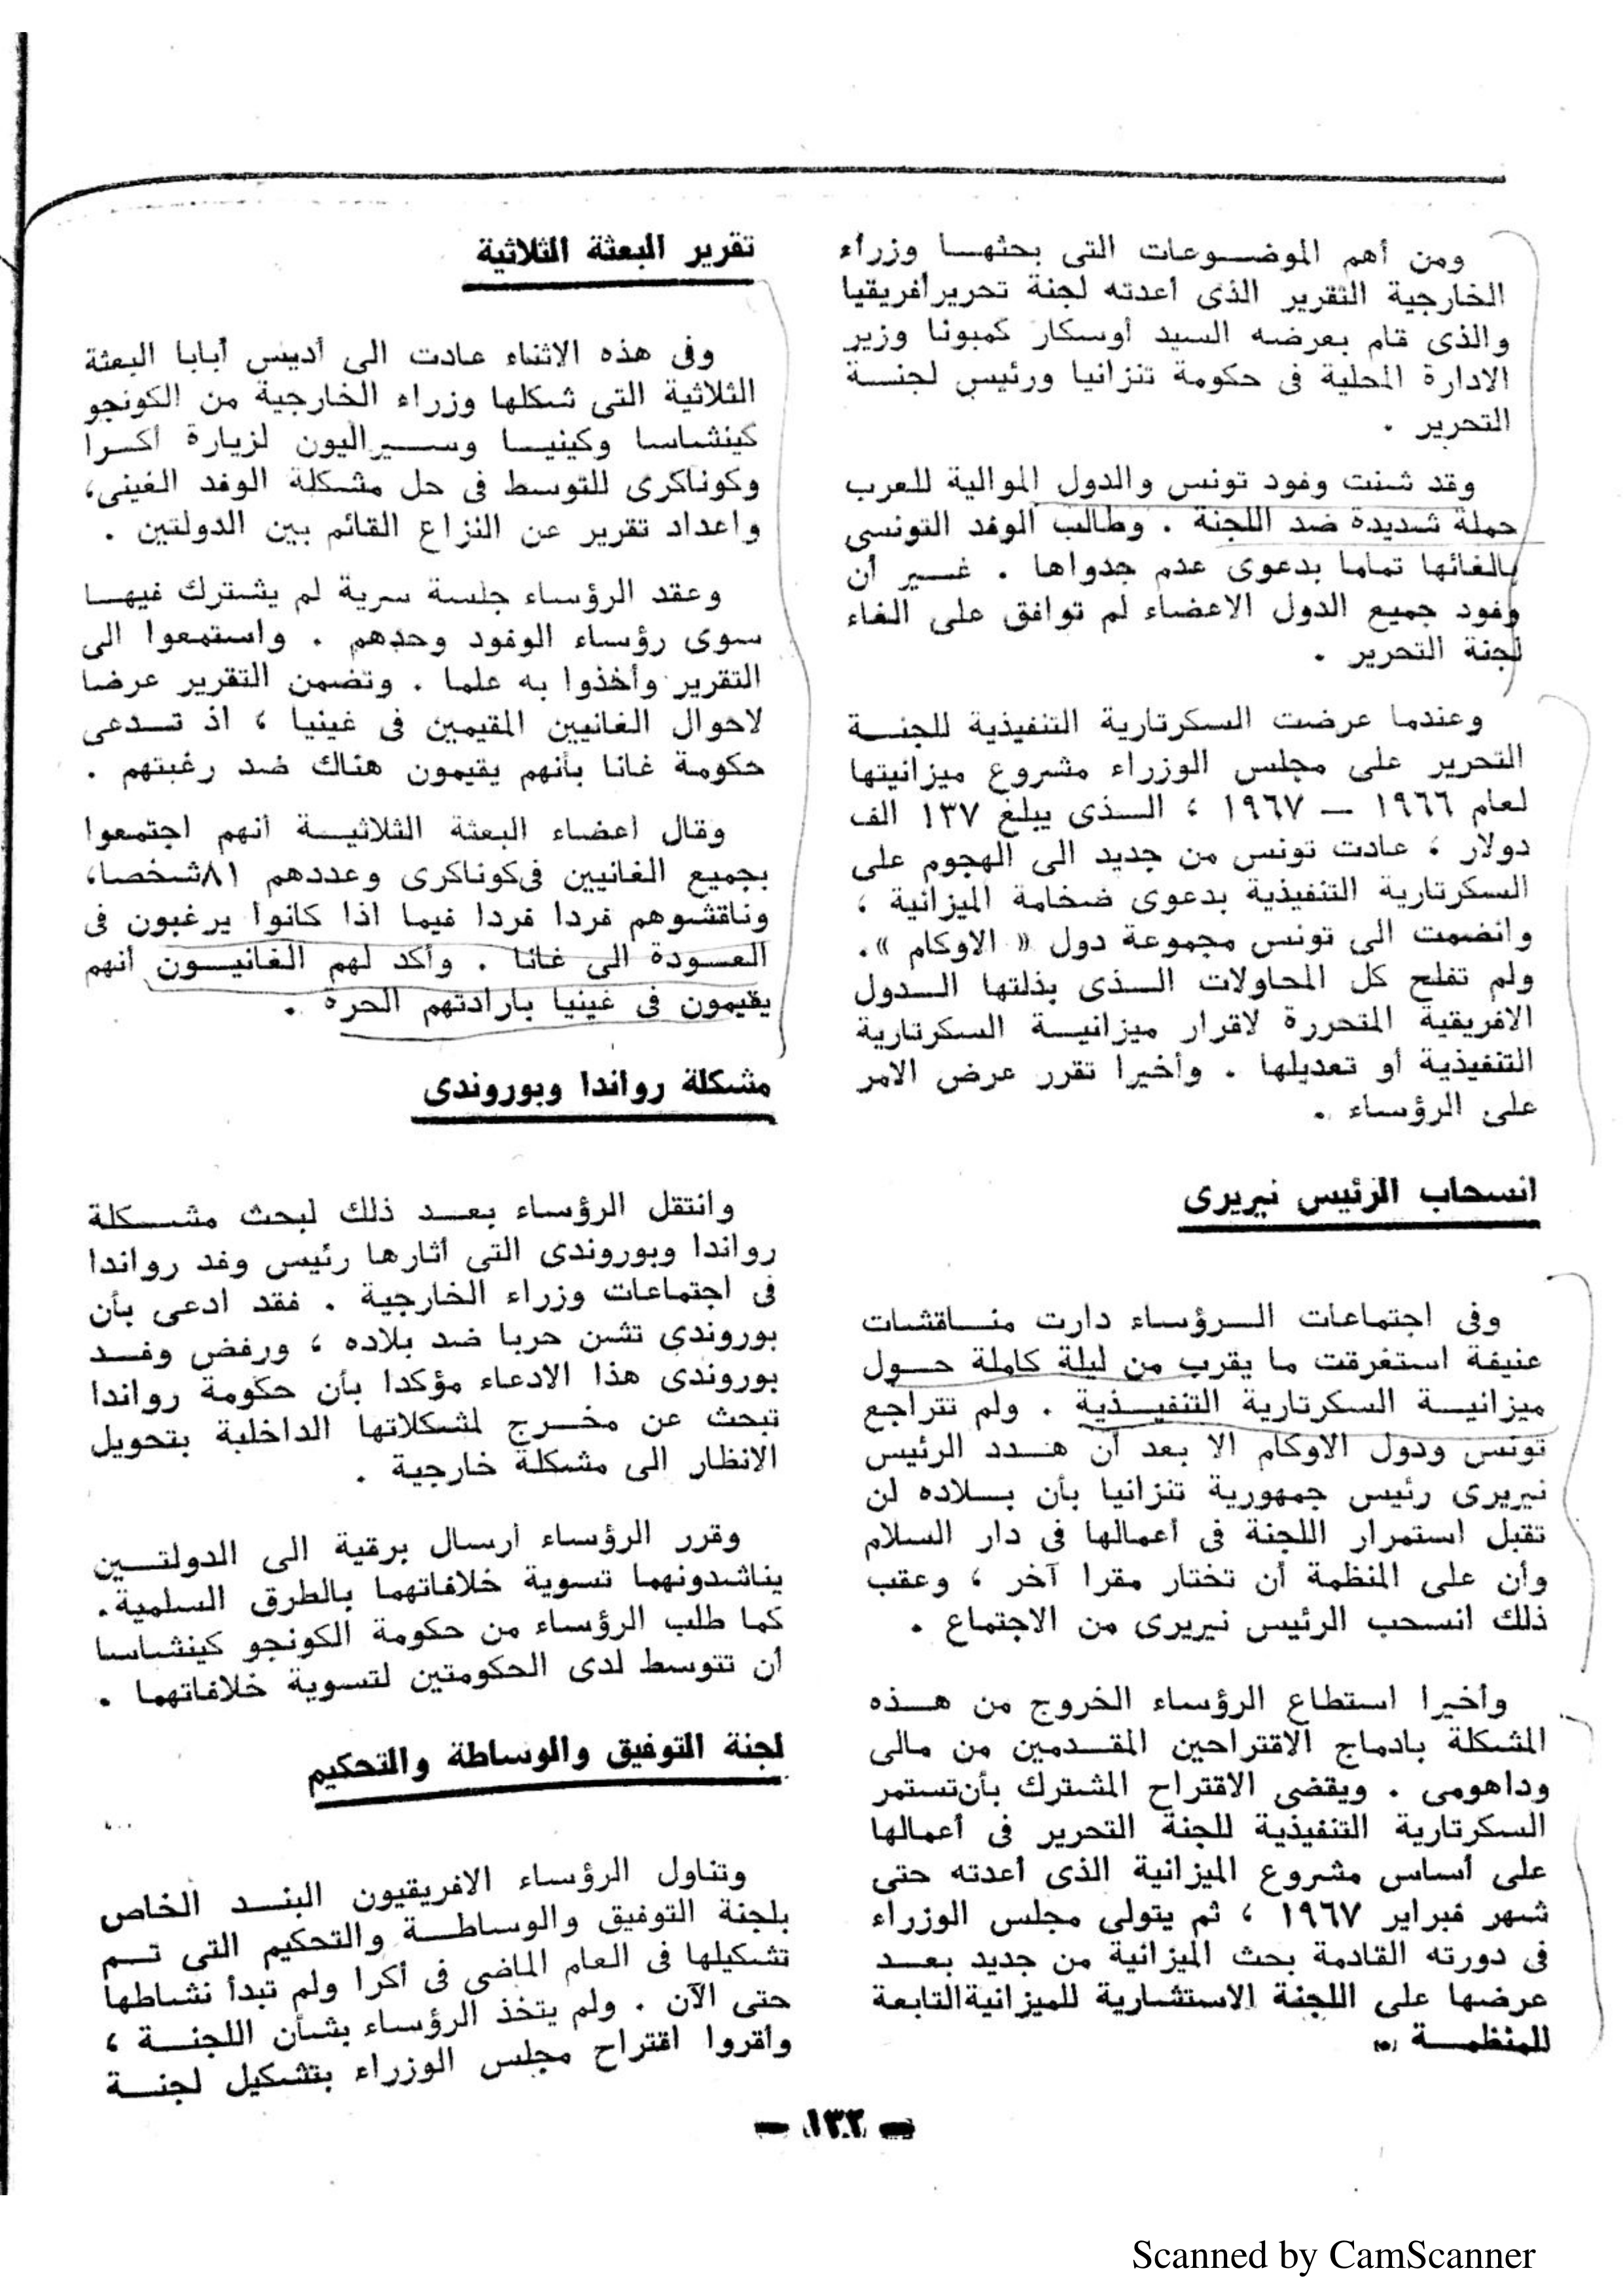 ومن أهم الموضوعات التى بحثها وزراء
الخارجية التقرير الذى أعدته لجنة تحرير أفريقيا
والذى قام بعرضه السيد أوسكار كمبونا وزير
الادارة المحلية فى حكومة تنزانيا ورئيس لجنة
التحرير .
وقد شنت وفود تونس والدول الموالية للعرب
حملة شديدة ضد اللجنة . وطالب الوفد التونسى
بالغائها تماما بدعوى عدم جدواها . غير أن
وفود جميع الدول الاعضاء لم توافق على الغاء
لجنة التحرير .
وعندما عرضت السكرتارية التنفيذية للجنة
التحرير على مجلس الوزراء مشروع ميزانيتها
لعام ١٩٦٦ — ١٩٦٧ ، الذى يبلغ ١٣٧ الف
دولار ، عادت تونس من جديد الى الهجوم على
السكرتارية التنفيذية بدعوى ضخامة الميزانية ،
وانضمت الى تونس مجموعة دول « الاوكام ».
ولم تفلح كل المحاولات الذى بذلتها الدول
الافريقية المتحررة لاقرار ميزانية السكرتارية
التنفيذية أو تعديلها . وأخيرا تقرر عرض الامر
على الرؤساء .
انسحاب الرئيس نيريرى
وفى اجتماعات الرؤساء دارت مناقشات
عنيفة استغرقت ما يقرب من ليلة كاملة حول
ميزانية السكرتارية التنفيذية . ولم تتراجع
تونس ودول الاوكام الا بعد أن هدد الرئيس
نيريرى رئيس جمهورية تنزانيا بأن بلاده لن
تقبل استمرار اللجنة فى أعمالها فى دار السلام
وأن على المنظمة أن تختار مقرا آخر ، وعقب
ذلك انسحب الرئيس نيريرى من الاجتماع .
وأخيرا استطاع الرؤساء الخروج من هذه
المشكلة بادماج الاقتراحين المقدمين من مالى
وداهومى . ويقضى الاقتراح المشترك بأن تستمر
السكرتارية التنفيذية للجنة التحرير فى أعمالها
على أساس مشروع الميزانية الذى أعدته حتى
شهر فبراير ١٩٦٧ ، ثم يتولى مجلس الوزراء
فى دورته القادمة بحث الميزانية من جديد بعد
عرضها على اللجنة الاستشارية للميزانية التابعة
للمنظمة
تقرير البعثة الثلاثية
وفى هذه الاثناء عادت الى أديس أبابا البعثة
الثلاثية التى شكلها وزراء الخارجية من الكونجو
كينشاسا وكينيا وسيراليون لزيارة أكرا
وكوناكرى للتوسط فى حل مشكلة الوفد الغينى،
واعداد تقرير عن النزاع القائم بين الدولتين .
وعقد الرؤساء جلسة سرية لم يشترك فيها
سوى رؤساء الوفود وحدهم . واستمعوا الى
التقرير وأخذوا به علما . وتضمن التقرير عرضا
لاحوال الغانيين المقيمين فى غينيا ، اذ تدعى
حكومة غانا بأنهم يقيمون هناك ضد رغبتهم .
وقال أعضاء البعثة الثلاثية أنهم اجتمعوا
بجميع الغانيين فى كوناكرى وعددهم ٨١ شخصا،
وناقشوهم فردا فردا فيما اذا كانوا يرغبون فى
العودة الى غانا . وأكد لهم الغانيون أنهم
يقيمون فى غينيا بارادتهم الحرة .
مشكلة رواندا وبوروندى
وانتقل الرؤساء بعد ذلك لبحث مشكلة
رواندا وبوروندى التى أثارها رئيس وفد رواندا
فى اجتماعات وزراء الخارجية . فقد ادعى بأن
بوروندى تشن حربا ضد بلاده ، ورفض وفد
بوروندى هذا الادعاء مؤكدا بأن حكومة رواندا
تبحث عن مخرج لمشكلاتها الداخلية بتحويل
الانظار الى مشكلة خارجية .
وقرر الرؤساء أرسال برقية الى الدولتين
يناشدونهما تسوية خلافاتهما بالطرق السلمية.
كما طلب الرؤساء من حكومة الكونجو كينشاسا
أن تتوسط لدى الحكومتين لتسوية خلافاتهما .
لجنة التوفيق والوساطة والتحكيم
وتناول الرؤساء الافريقيون البند الخاص
بلجنة التوفيق والوساطة والتحكيم التى تم
تشكيلها فى العام الماضى فى أكرا ولم تبدأ نشاطها
حتى الآن . ولم يتخذ الرؤساء بشأن اللجنة ،
وأقروا اقتراح مجلس الوزراء بتشكيل لجنة
— ١٣٢ —
Scanned by CamScanner